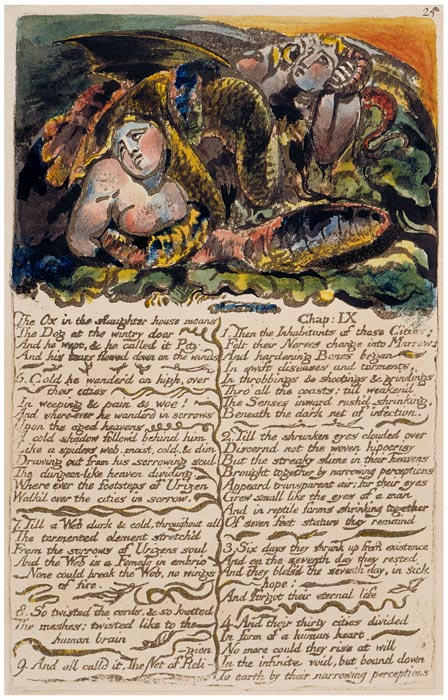 25
The Ox in the slaughter house moans
The Dog at the wintry door
And he wept, & he called it Pity
And his tears flowed down on the winds
5. Cold he wander'd on high, over
their cities
In weeping & pain & woe!
And where-ever he wanderd in sorrows
Upon the aged heavens
A cold shadow follow'd behind him
Like a spiders web, moist, cold, & dim
Drawing out from his sorrowing soul
The dungeon-like heaven dividing
Where ever the footsteps of Urizen
Walk'd over the cities in sorrow.
7. Till a Web dark & cold, throughout all
The tormented element stretch'd
From the sorrows of Urizens soul
And the Web is a Female in embrio
None could break the Web, no wings
of fire.
8. So twisted the cords, & so knotted
The meshes: twisted like to the
human brain
-gion
9. And all calld it, The Net of Reli-
Chap: IX
1. Then the Inhabitants of those Cities:
Felt their Nerves change into Marrow
And hardening Bones began
In swift diseases and torments,
In throbbings & shootings & grindings
Thro' all the coasts; till weaken'd
The Senses inward rush'd shrinking,
Beneath the dark net of infection.
2. Till the shrunken eyes clouded over
Discernd not the woven hipocrisy
But the streaky slime in their heavens
Brought together by narrowing perceptions
Appeard transparent air; for their eyes
Grew small like the eyes of a man
And in reptile forms shrinking together
Of seven feet stature they remaind
3. Six days they shrunk up from existence
And on the seventh day they rested
And they bless'd the seventh day, in sick
hope:
And forgot their eternal life
4. And their thirty cities divided
In form of a human heart
No more could they rise at will
In the infinite void, but bound down
To earth by their narrowing perceptions